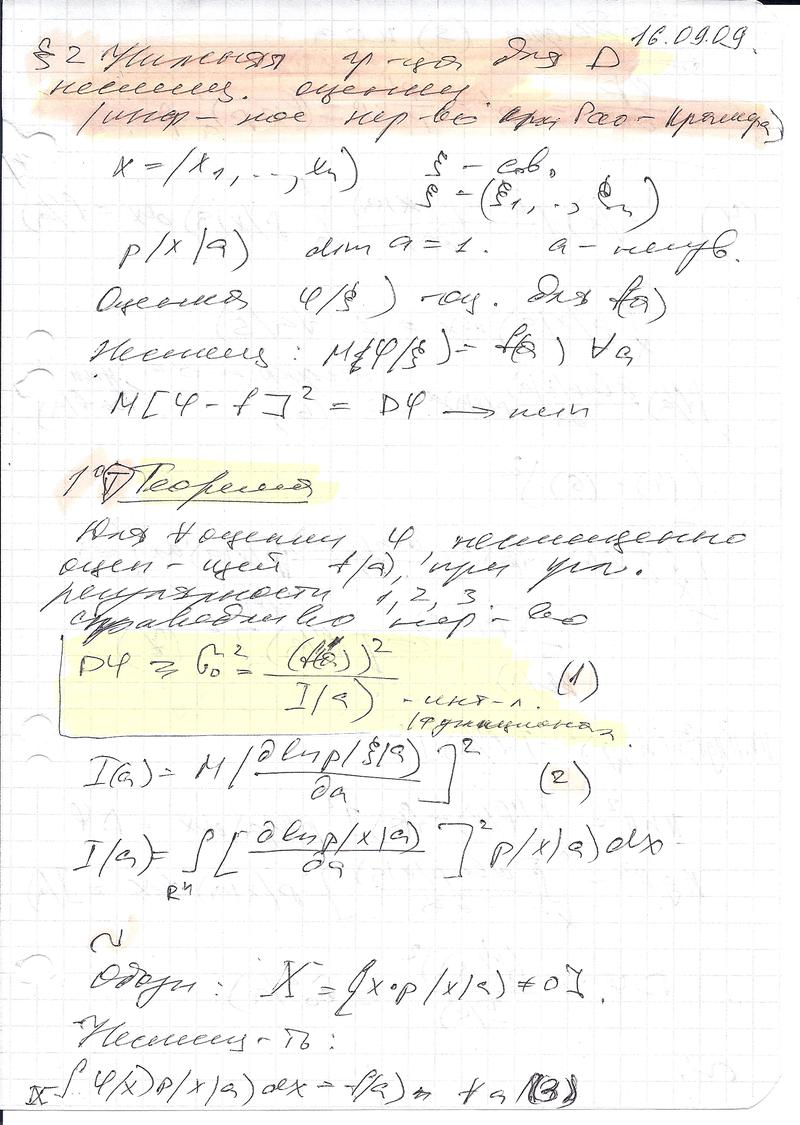 16.09.09.
§ 2 Нижняя гр-ца для D
несмещ. оценки
(инф-ное нер-во Рао-Крамера)
x = (x₁, ..., xₙ) ξ – св.
ξ = (ξ₁, ..., ξₙ)
p(x|a) dim a = 1. a – неизв.
Оценка φ(ξ) – оц. для f(a)
Несмещ: M{φ(ξ)} = f(a) ∀a
M[φ – f]² = Dφ → min
1° Т Теорема
Для ∀ оценки φ, несмещенно
оцен-щей f(a), при усл.
регулярности 1, 2, 3.
справедливо нер-во
Dφ ≥ σ₀² = (f'(a))² / I(a) (1)
I(a) = M[∂ ln p(ξ|a) / ∂a]² (2)
I(a) = ∫_{Rⁿ} [∂ ln p(x|a) / ∂a]² p(x|a) dx
~
Обозн: X = {x: p(x|a) ≠ 0}.
Несмещ-ть:
∫_X φ(x) p(x|a) dx = f(a) ∀a (3)